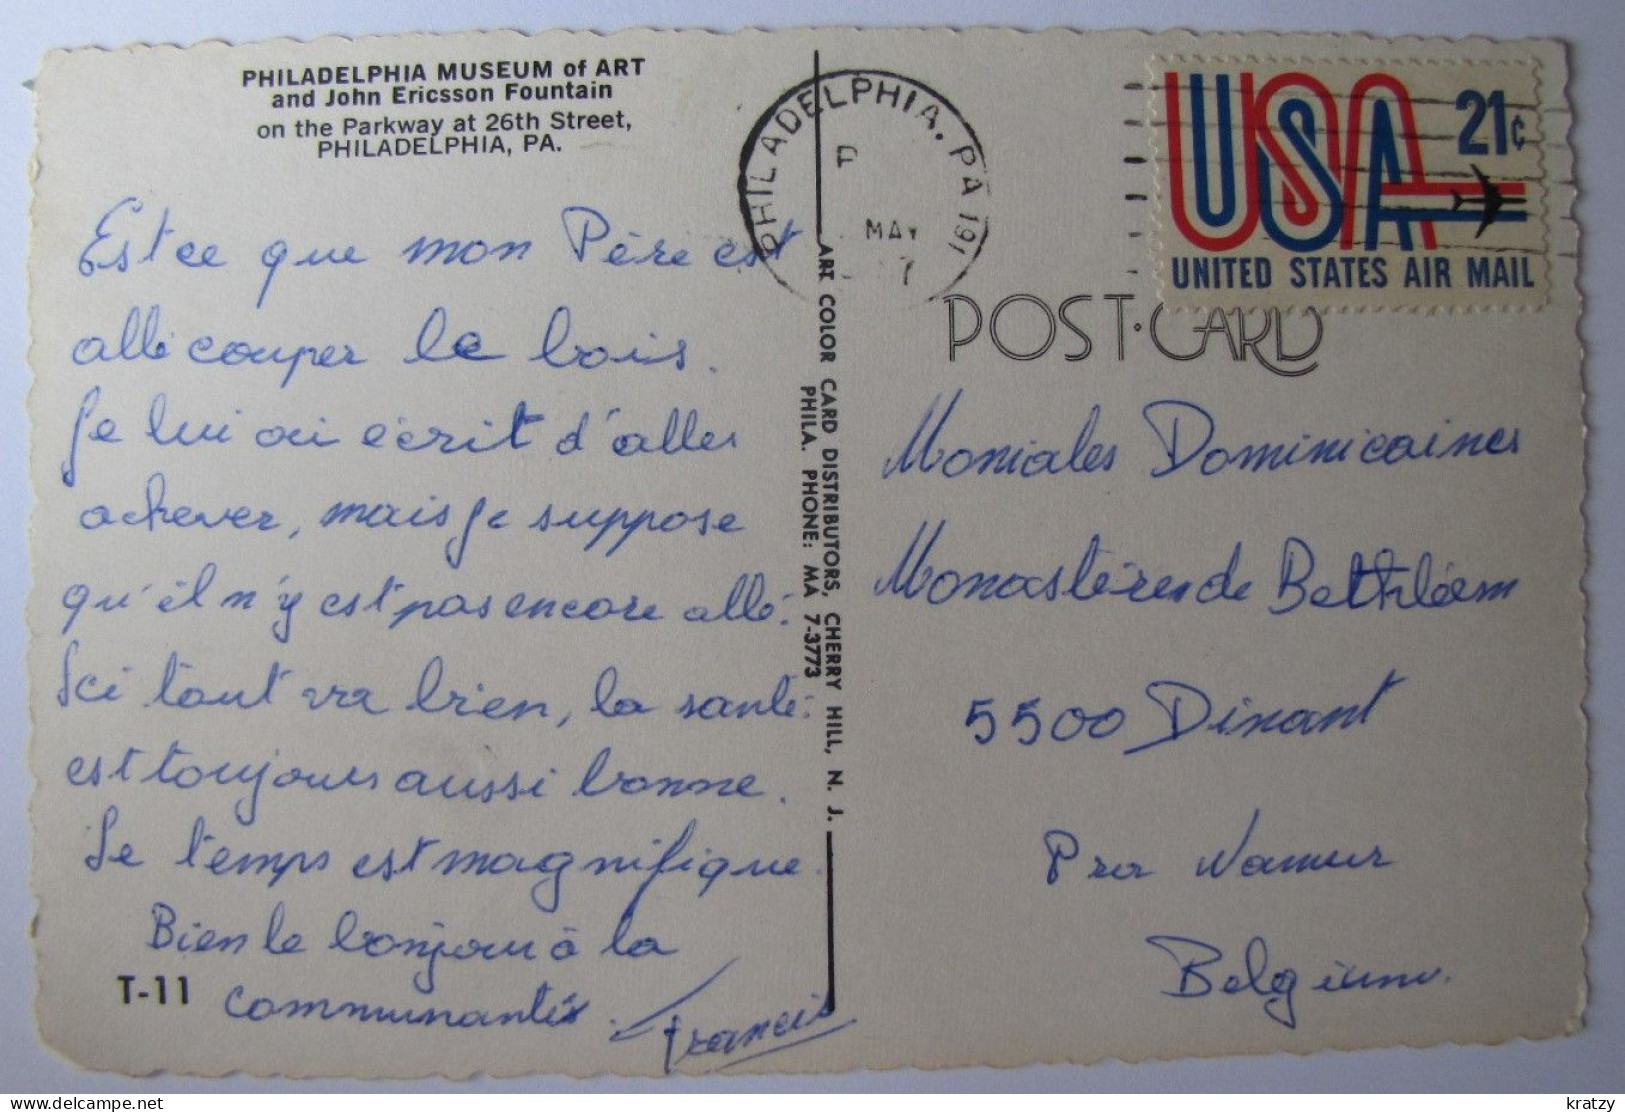 PHILADELPHIA MUSEUM of ART
and John Ericsson Fountain
on the Parkway at 26th Street,
PHILADELPHIA, PA.
Est ce que mon Père est
allé couper le bois.
Je lui ai écrit d'aller
achever, mais je suppose
qu'il n'y est pas encore allé.
Ici tout va bien, la santé
est toujours aussi bonne.
Le temps est magnifique.
Bien le bonjour à la
communauté.
Francis
T-11
ART COLOR CARD DISTRIBUTORS, CHERRY HILL, N. J.
PHILA. PHONE: MA 7-3773
PHILADELPHIA, PA 191
MAY
USA 21¢
UNITED STATES AIR MAIL
POST·CARD
Moniales Dominicaines
Monastère de Bethléem
5500 Dinant
Prov Namur
Belgium.
kratzy